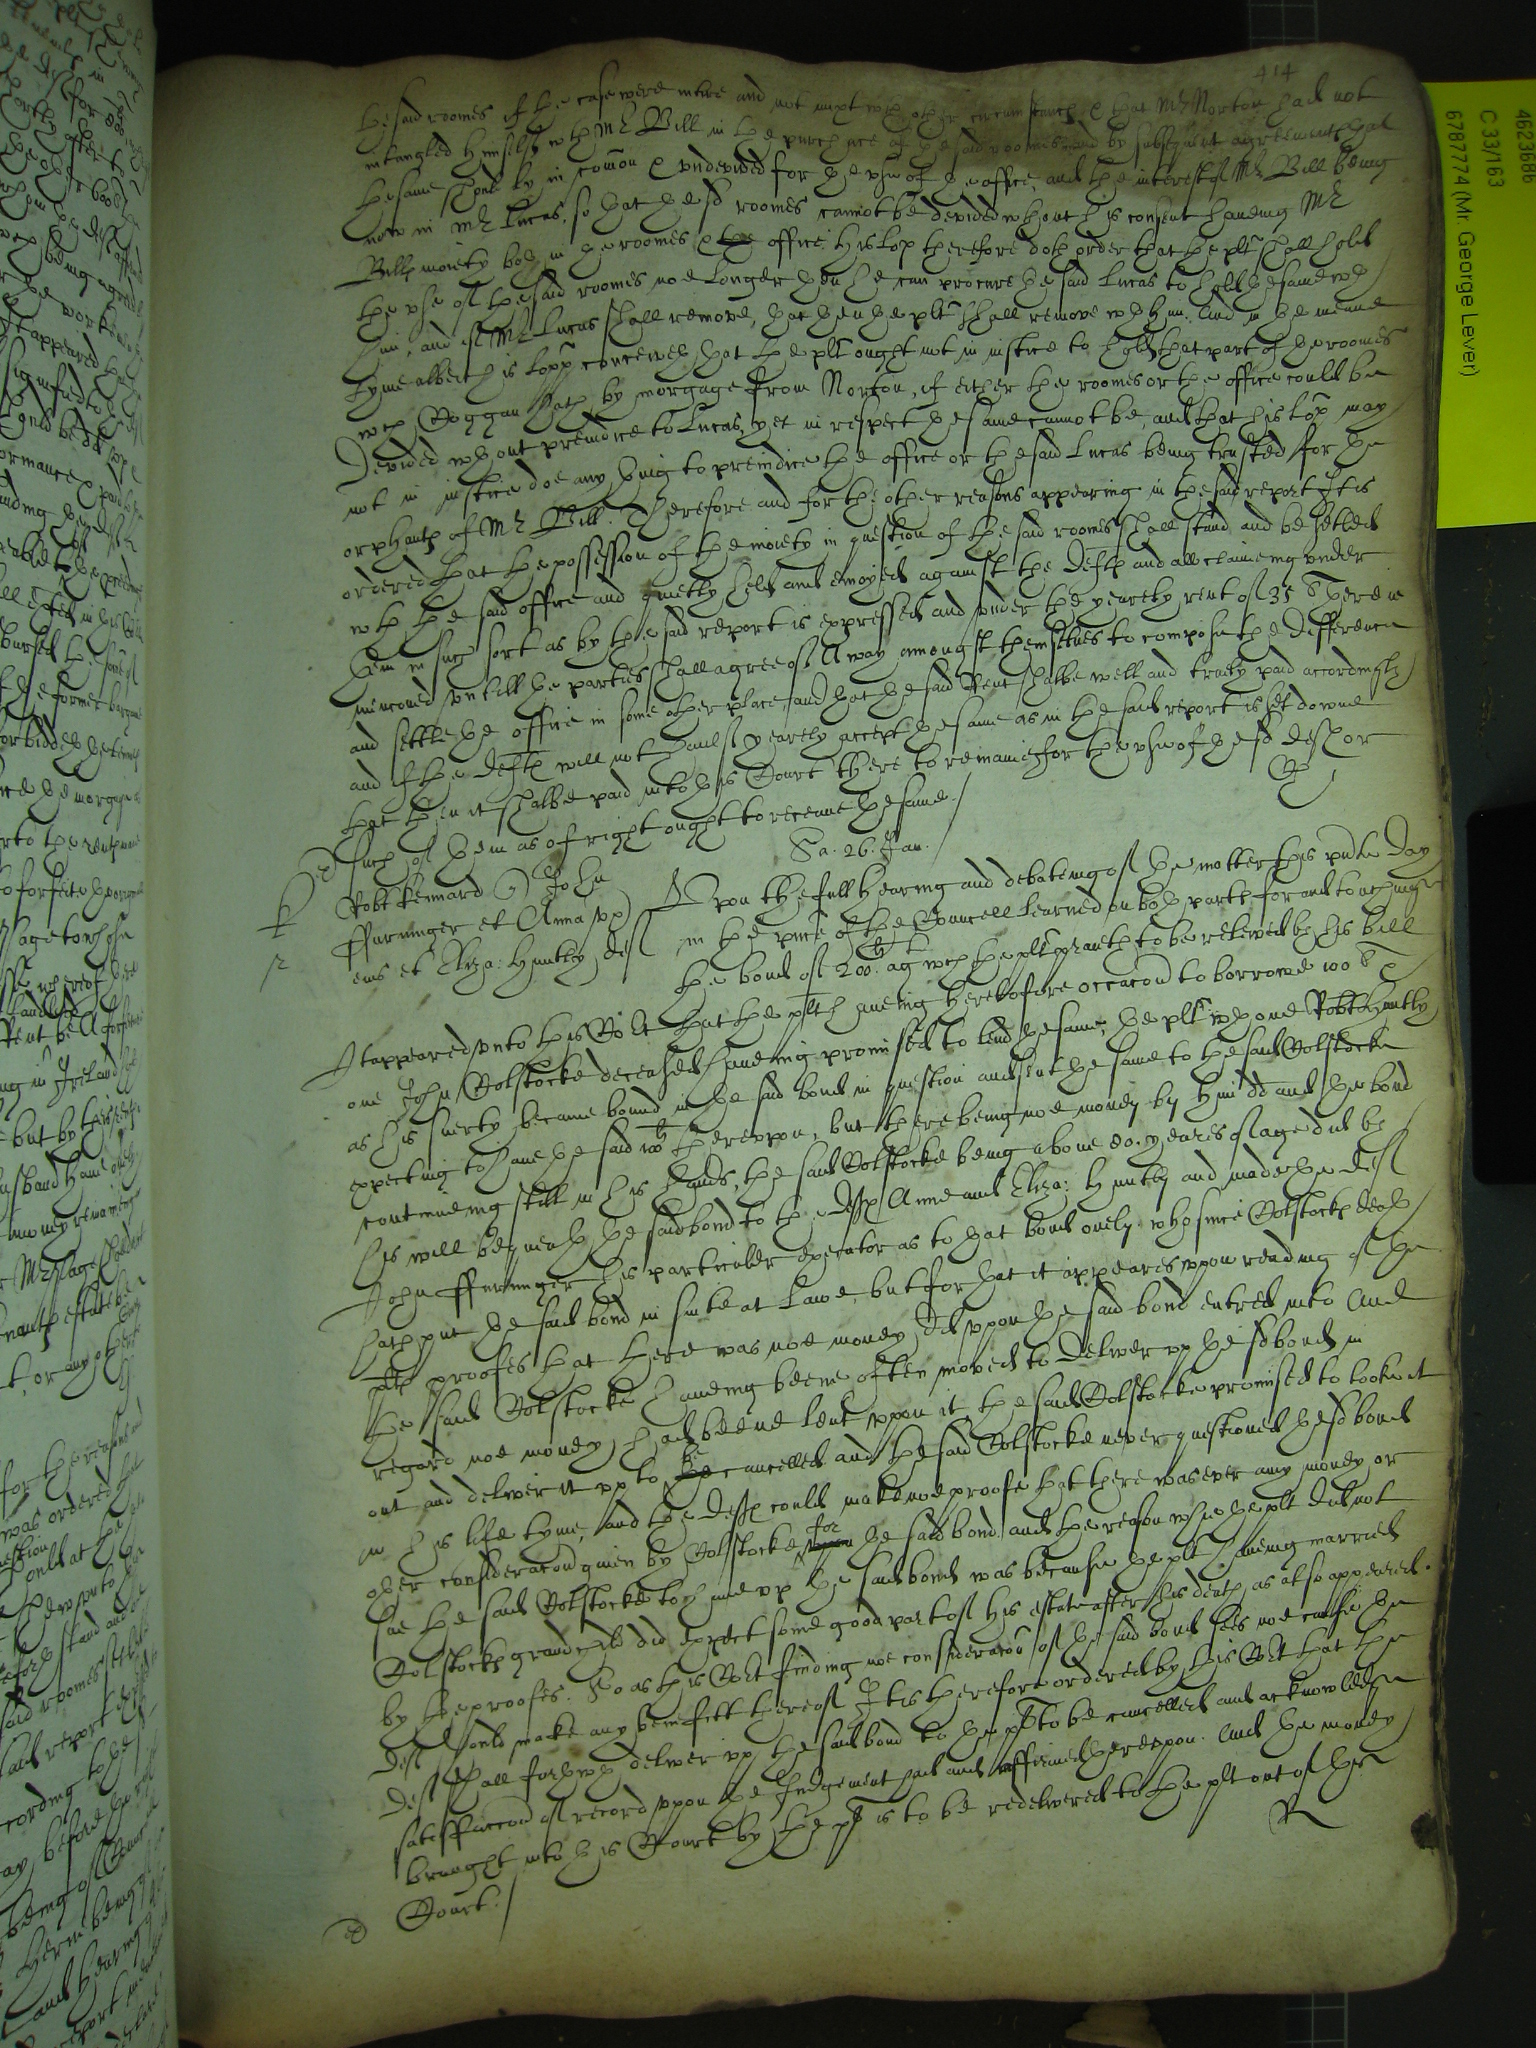 414
the said roomes if the case were intire and not mixt wth other circumstances & that Mr Norton had not
intangled himselfe wth Mr Bill in the purchace of the said roomes and by subsequent agreement that
the same should ly in comon & undevided for the use of the office, and the interest of Mr Bill being
now in Mr Lucas, so that the sd roomes cannot be devided wthout his consent haveing Mr
Bills moiety both in the roomes & office. his lop therefore doth order that the plt shall hold
the use of the said roomes noe longer then he can procure the said Lucas to hold the same wth
him, and if Mr Lucas shall remove, that then the plt shall remove wth him. And in the meane
tyme albeit his lopp conceiveth that the plt ought not in iustice to hold that part of the roomes
wch Goggan hath by morgage from Norton, if either the roomes or the office could be
devided wthout preiudice to Lucas, yet in respect the same cannot be, and that his lop may
not in iustice doe any thing to preiudice the office or the said Lucas being trusted for the
orphants of Mr Bill. Therefore and for the other reasons appearing in the said report It is
ordered that the possession of the moiety in question of the said roomes shall stand and be setled
wth the said office and quietly held and enioyed against the defts and all claimeing under
them in such sort as by the said report is expressed and under the yearely rent of 35 therein
mencioned untill the parties shall agree of a way amongst themselves to compose the difference
and settle the office in some other place and that the said Rent shalbe well and truely paid accordingly
and if the defts will not yearely accept the same as in the said report is set downe
that then it shalbe paid into this Court there to remaine for the use of the sd deft or
such of them as of right ought to receive the same./
Sa. 26. Jan.
Robt Kennard John
Furninger et Anna uxor
eius et Eliza: Huntly def
Upon the full hearing and debateing of the matter this pnte day
in the pnce of the Councell learned on both parts for and touching
the bond of 200. ag wch the plt prayeth to be releived by his bill
It appeared unto this Cort that the plt haveing heretofore occacon to borrowe 100
one John Colstocke deceased haveing promised to lend the same, the plt wth one Robt Huntly
as his suerty became bound in the said bond in question and sent the same to the said Colstocke
expecting to have the said 100 thereupon, but there being noe money by him dd and the bond
continueing still in his hands, the said Colstocke being above 80. yeares of age did by
his will bequeath the said bond to the defts Anne and Eliza: Huntly and made the deft
John Furninger his particuler executor as to that bond onely. who since Colstocks death
hath put the said bond in suite at lawe, but for that it appeares upon reading of the
plts proofes that there was noe money dd upon the said bond entred into And
the said Colstocke haveing beene often moved to deliver up the sd bond in
regard noe money had beene lent upon it, the said Colstocke promised to looke it
out and deliver it up to be cancelled and the said Colstocke never questioned the sd bond
in his life tyme, and the defts could make noe proofe that there was ever any money or
other consideracon given by Colstocke for the said bond. and the reason whie the plt did not
sue the said Colstocke to have up the said bond was because the plt haveing married
Colstocks grandchild did expect some good part of his estate after his death, as also appeared
by the proofes. So as this Cort finding noe consideracon of the said bond sees noe cause the
deft should make any benefitt thereof It is therefore ordered by this Cort that the
deft shall forthwth deliver up the said bond to the plt to be cancelled and acknowledge
satisfaccon of record upon the Judgement had and affirmed thereupon. And the money
brought into this Court by the plt is to be redelivered to the plt out of this
Court./
R
4623686
C 33/163
67877774 (Mr. George Lever)